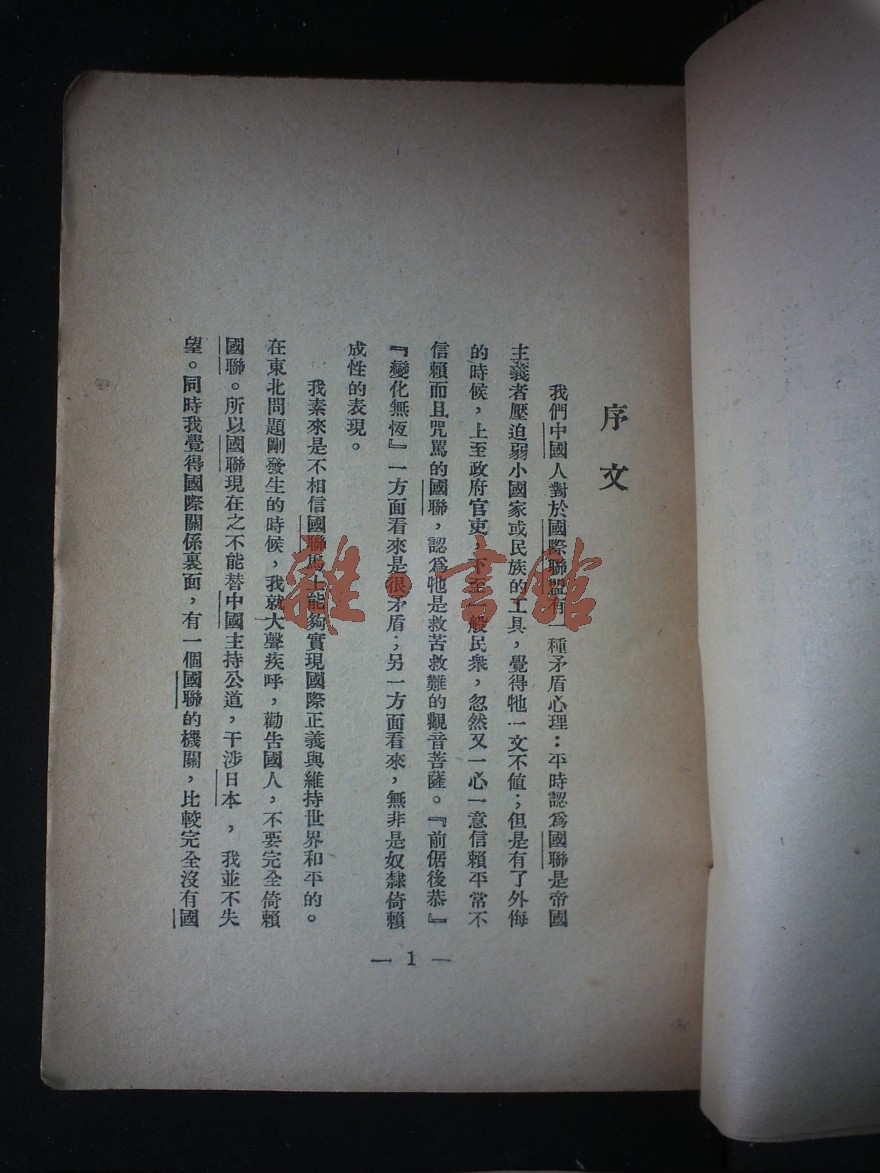 序文
我們中國人對於國際聯盟有一種矛盾心理：平時認爲國聯是帝國
主義者壓迫弱小國家或民族的工具，覺得牠一文不値；但是有了外侮
的時候，上至政府官吏，下至一般民衆，忽然又一心一意信賴平常不
信賴而且咒罵的國聯，認爲牠是救苦救難的觀音菩薩。『前倨後恭』
『變化無恆』一方面看來是很矛盾；另一方面看來，無非是奴隸倚賴
成性的表現。
我素來是不相信國聯馬上能夠實現國際正義與維持世界和平的。
在東北問題剛發生的時候，我就大聲疾呼，勸告國人，不要完全倚賴
國聯。所以國聯現在之不能替中國主持公道，干涉日本，我並不失
望。同時我覺得國際關係裏面，有一個國聯的機關，比較完全沒有國
— 1 —
雜·書館